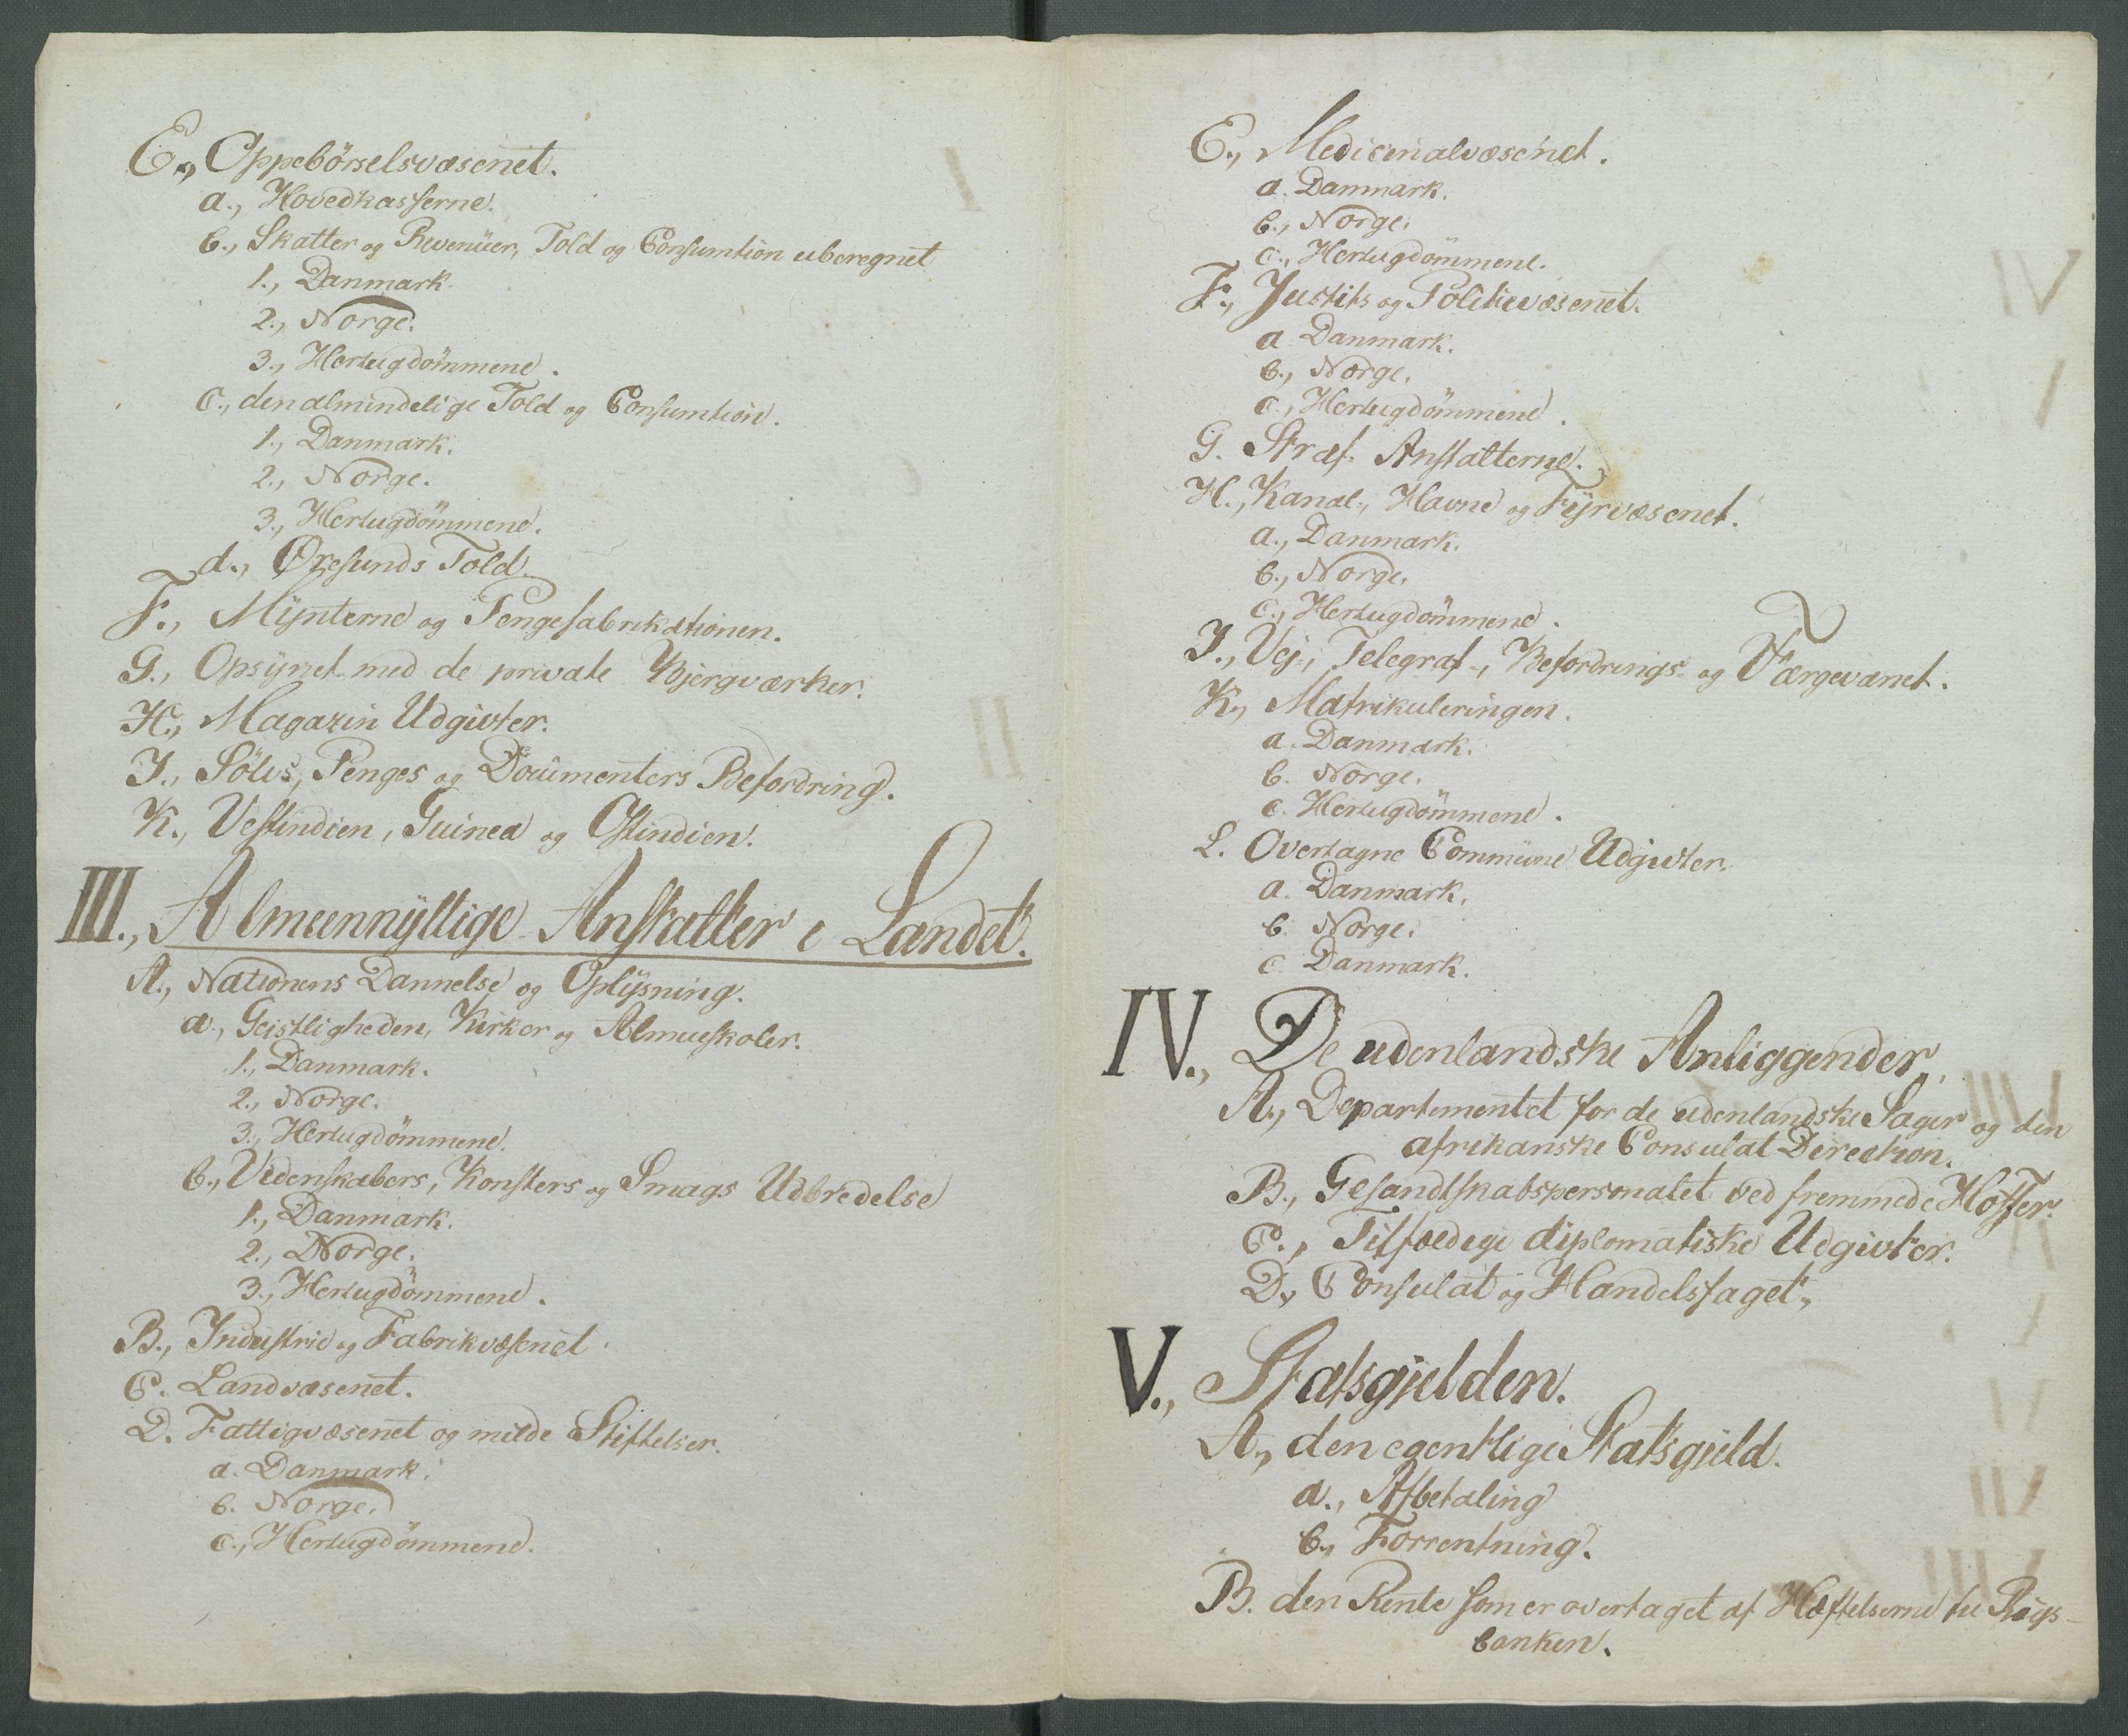 E., Oppebörselsvæsenet.
a., Hovedkasserne.
b., Skatter og Revenüer, Told og Consumtion uberegnet
1., Danmark.
2., Norge.
3., Hertugdömmene.
c., den almindelige Told og Consumtion.
1., Danmark.
2., Norge.
3., Hertugdömmene.
d., Øresunds Told.
F., Mÿnterne og Pengefabrikationen.
G., Opsÿnet med de private Bjergværker.
H., Magazin Udgivter.
I., Sölvs, Penges og Documenters Befordring.
K., Vestindien, Guinea og Ostindien.
III., Almeennÿttige Anstalter i Landet.
A., Nationens Dannelse og Oplÿsning.
a., Geistligheden, Kirker og Almueskoler.
1., Danmark.
2., Norge.
3., Hertugdömmene.
b., Videnskabers, Konsters og Smags Udbredelse
1., Danmark.
2., Norge.
3., Hertugdömmene.
B., Industrie og Fabrikvæsenet.
C. Landvæsenet.
D. Fattigvæsenet og milde Stiftelser.
a. Danmark.
b. Norge.
c., Hertugdömmene.
E., Medicinalvæsenet.
a. Danmark.
b., Norge.
c., Hertugdömmene.
F., Justits og Politievæsenet.
a Danmark.
b., Norge.
c., Hertugdömmene.
G. Straf-Anstalterne.
H., Kanal-, Havne og Fÿrvæsenet.
a., Danmark.
b., Norge.
c., Hertugdömmene.
I., Vej-, Telegraf-, Befordrings- og Færgevænet.
K., Matrikuleringen.
a. Danmark.
b. Norge.
c. Hertugdömmene.
L. Overtagne Commüne Udgivter.
a. Danmark.
b. Norge.
c. Danmark.
IV., De udenlandske Anliggender.
A., Departementet for de udenlandske Sager og den
afrikanske Consulat Direction.
B., Gesandtskabspersonalet ved fremmede Hoffer.
C., Tilfældige diplomatiske Udgivter.
D., Consulat og Handelsfaget.
V., Statsgjelden.
A., den egentlige Statsgjeld.
a., Afbetaling
b., Forrentning.
B. den Rente som er overtaget af Hæftelserne til Rigs-
banken.